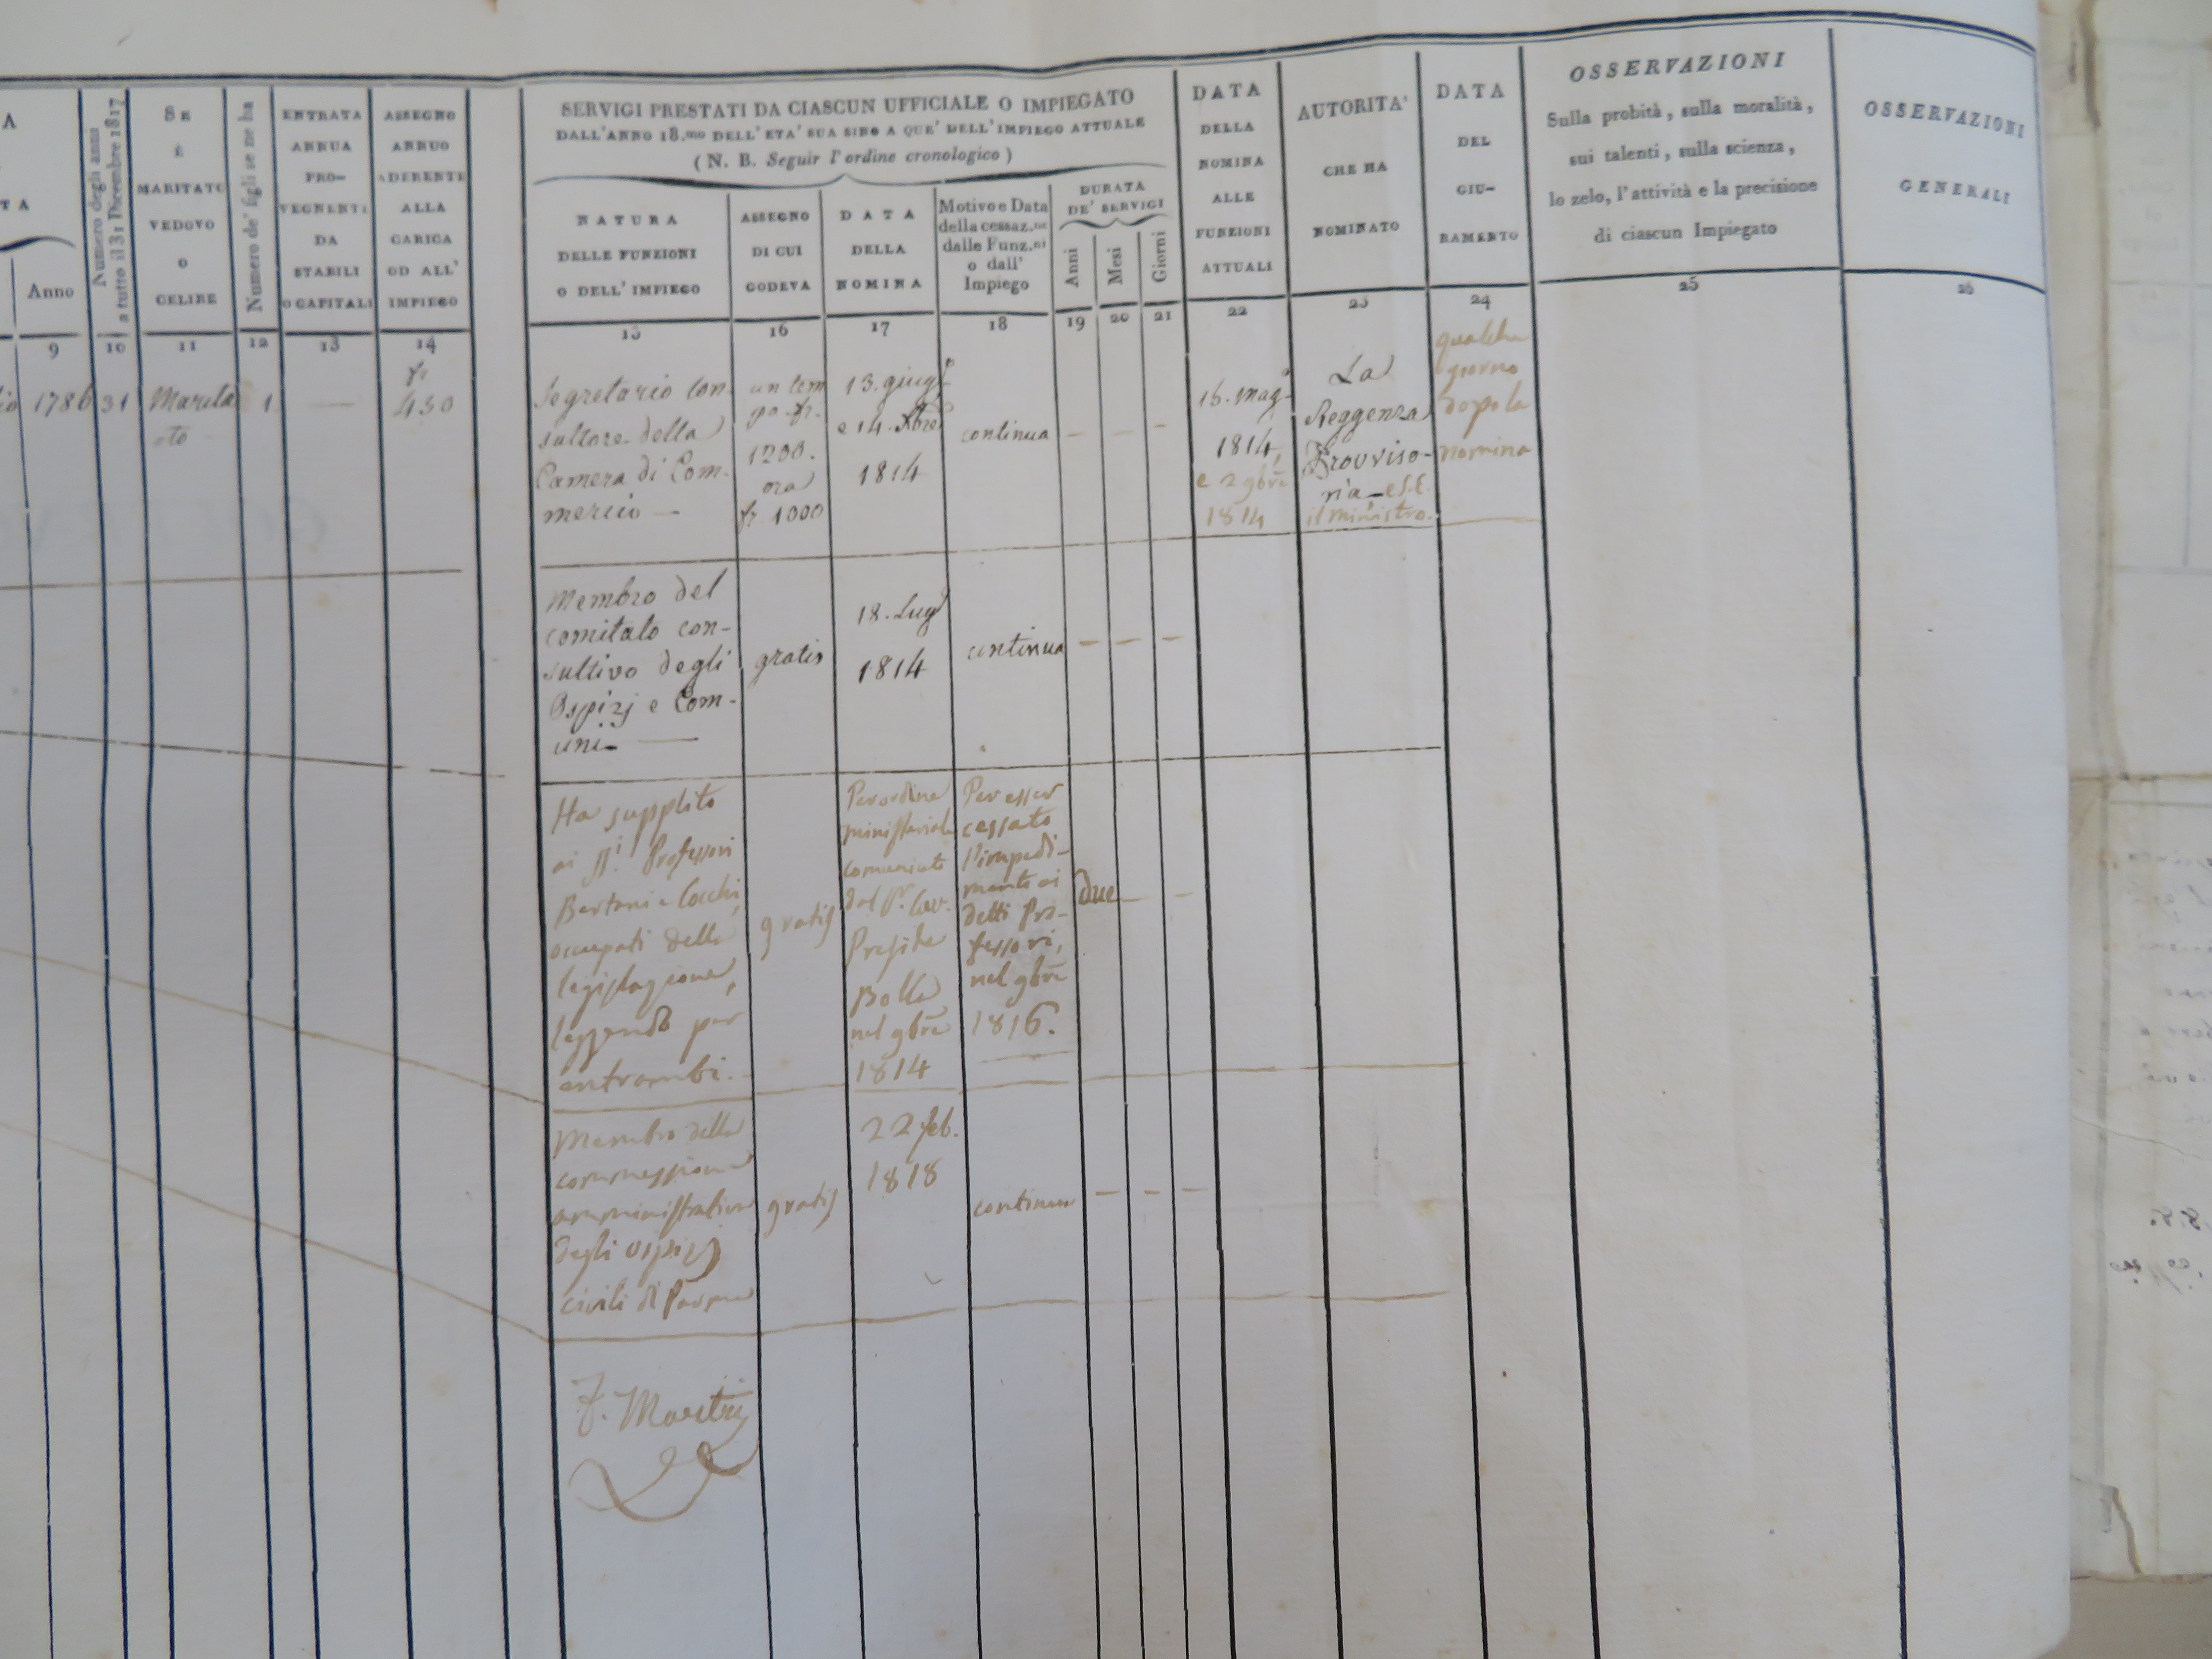 A
TA
Anno
9
Numero degli anni
a tutto il 31 Dicembre 1817
10
SE
È
MARITATO
VEDOVO
O
CELIBE
11
Numero de' figli se ne ha
12
ENTRATA
ANNUA
PRO-
VEGNENTE
DA
STABILI
O CAPITALI
13
ASSEGNO
ANNUO
ADERENTE
ALLA
CARICA
OD ALL'
IMPIEGO
14
SERVIGI PRESTATI DA CIASCUN UFFICIALE O IMPIEGATO
DALL'ANNO 18.mo DELL'ETA' SUA SINO A QUE' DELL'IMPIEGO ATTUALE
(N. B. Seguir l'ordine cronologico)
NATURA
DELLE FUNZIONI
O DELL'IMPIEGO
15
ASSEGNO
DI CUI
GODEVA
16
DATA
DELLA
NOMINA
17
Motivo e Data
della cessaz.ne
dalle Funz.ni
o dall'
Impiego
18
DURATA
DE' SERVIGI
Anni
19
Mesi
20
Giorni
21
DATA
DELLA
NOMINA
ALLE
FUNZIONI
ATTUALI
22
AUTORITA'
CHE HA
NOMINATO
23
DATA
DEL
GIU-
RAMENTO
24
OSSERVAZIONI
Sulla probità, sulla moralità,
sui talenti, sulla scienza,
lo zelo, l'attività e la precisione
di ciascun Impiegato
25
OSSERVAZIONI
GENERALI
26
1786
31
Marita
ato
1
—
fr
450
Segretario Con-
sultore della
Camera di Com-
mercio —
un tem
po fr.
1200.
ora
fr. 1000
13. giug.o
e 14. Xbre
1814
continua
— — —
16. mag.o
1814,
e 2 9bre
1814
La
Reggenza
Provviso-
ria e S.E.
il ministro.
qualche
giorno
dopo la
nomina
Membro del
comitato con-
sultivo degli
Ospizj e Com-
uni. —
gratis
18. Lug.o
1814
continua
— — —
Ha supplito
ai SS.i Professori
Bertani e Cocchi,
occupati della
legislazione,
leggendo per
entrambi.
gratis
Per ordine
ministeriale
comunicato
dal Sr. Cav.
Preside
Bolla
nel 9bre
1814
Per esser
cessato
l'impedi-
mento ai
detti Pro-
fessori,
nel 9bre
1816.
due
— —
Membro della
commessione
amministrativa
degli ospizj
civili di Parma
gratis
22 feb.
1818
continua
— — —
F. Maestri